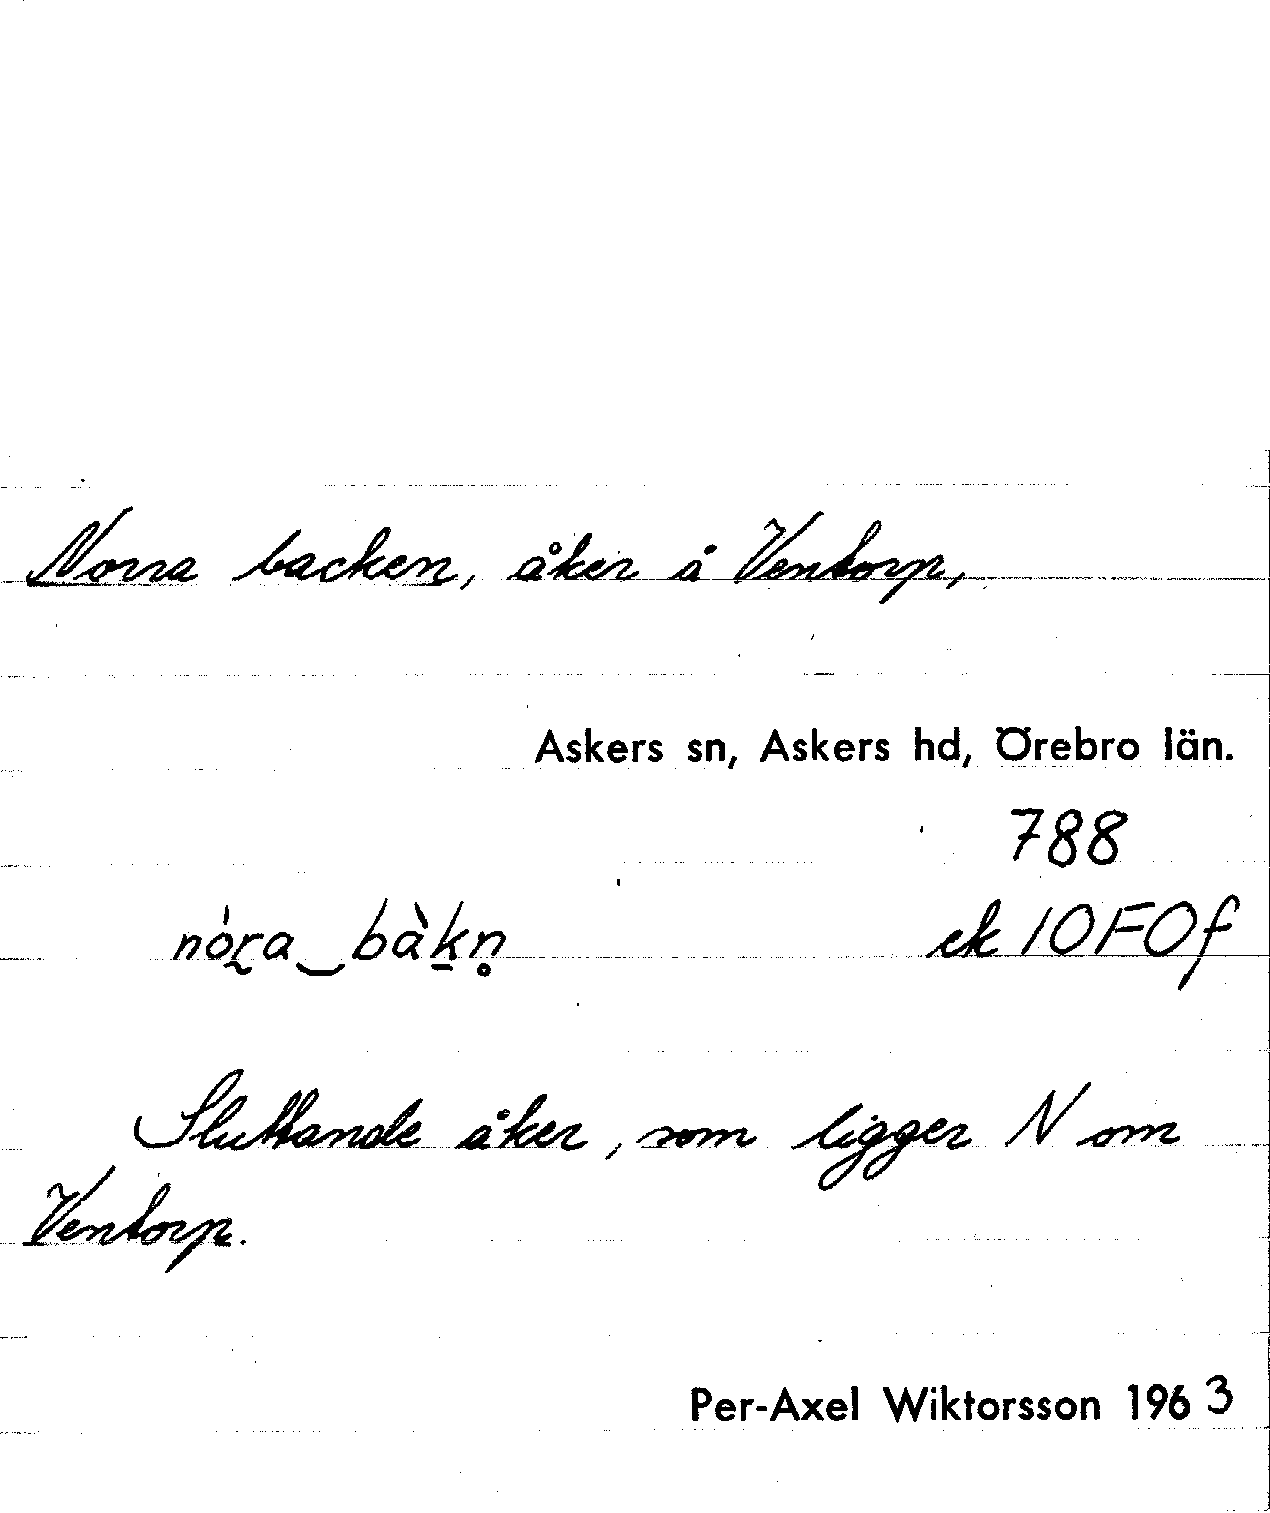 Norra backen, åker å Ventorp,
Askers sn, Askers hd, Örebro län.
788
nòra‿bàkn̥
ek 10F0f
Sluttande åker, som ligger N om
Ventorp.
Per-Axel Wiktorsson 1963